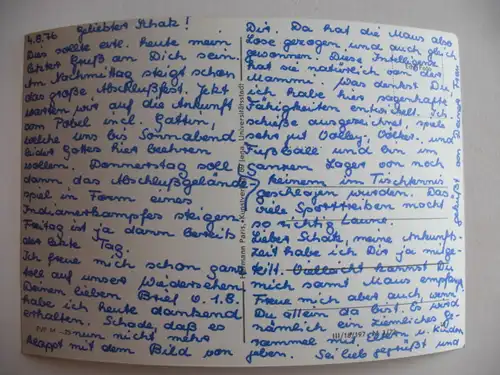 4.8.76 geliebter Schatz!
Dies sollte evtl. heute mein
letzter Gruß an Dich sein.
Am Nachmittag steigt schon
das große Abschlußfest. Jetzt
warten wir auf die Ankunft
vom incl. Gattin,
welche uns bis Sonnabend
leider Gottes hier beehren
wollen. Donnerstag soll
dann das Abschlußgelände-
spiel in Form eines
Indianerkampfes steigen.
Freitag ist ja dann bereits
der letzte Tag.
Ich freue mich schon ganz
toll auf unser Wiedersehen.
Deinen lieben Brief v. 1.8.
habe ich heute dankend
erhalten. Schade, daß es
nun nicht mehr
klappt mit dem Bild von
Dir. Da hat die Maus also
Lose gezogen und auch gleich
gewonnen. Diese Intelligenz
hat sie natürlich von der
Mammi. Was denkst Du
ich habe hier sagenhafte
Fähigkeiten entwickelt. Ich
schieße ausgezeichnet, spiele
sehr gut Volley-, Völker- und
Fußball und bin im
ganzen Lager von noch
keinem im Tischtennis
geschlagen wurden. Das
viele Sporttreiben macht
so richtig Laune.
Lieber Schatz, meine Ankunfts-
zeit habe ich Dir ja mitge-
teilt. Vielleicht kannst Du
mich samt Maus empfang.
Freue mich aber auch, wenn
Du allein da bist. Es wird
nämlich ein ziemliches Ge-
rammel mit Eltern u. Kindern
geben. Sei lieb gegrüßt und
geküßt von Deiner Frau
Jena, Universitätsstadt